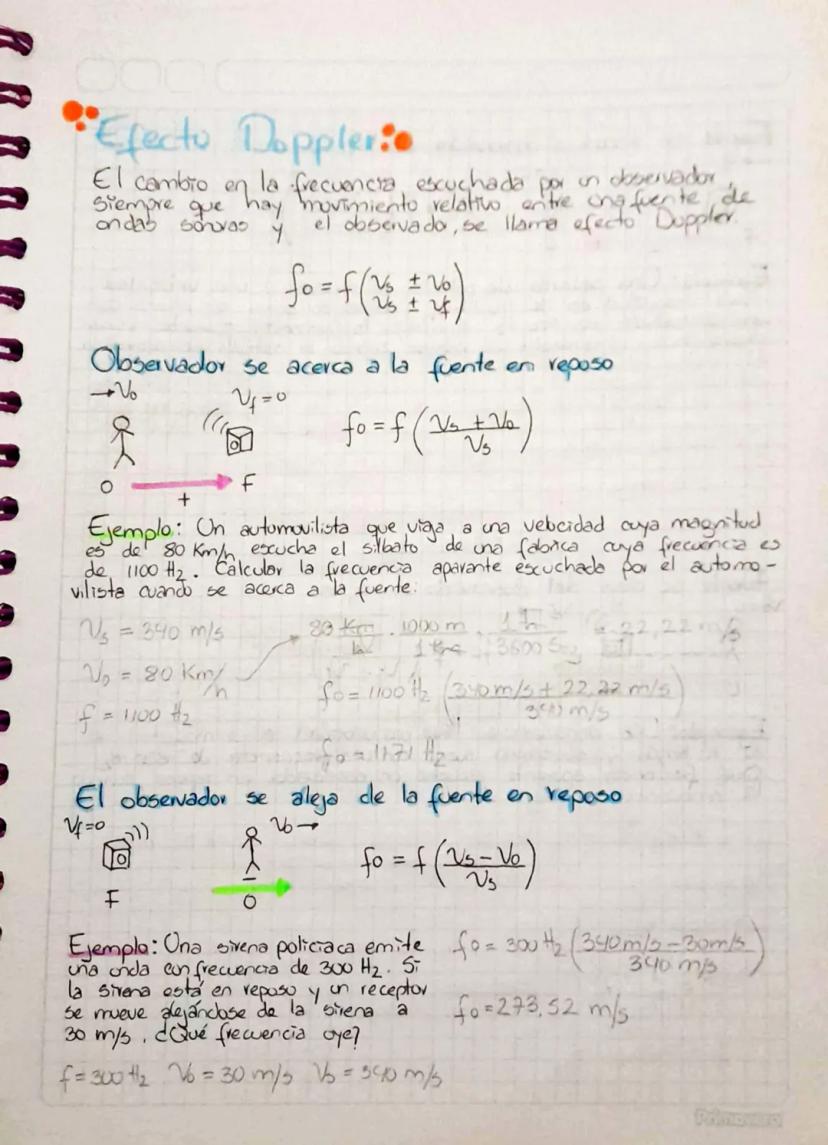 Efecto Doppler:
El cambio en la frecuencia escuchada por un observador,
siempre que hay movimiento relativo entre una fuente de
ondas sonoras y el observado, se llama efecto Doppler.
fo = f (Vs ± Vo / Vs ± Vf)
Observador se acerca a la fuente en reposo
→Vo Vf = 0
fo = f (Vs + Vo / Vs)
O + F
Ejemplo: Un automovilista que viaja a una velocidad cuya magnitud
es de 80 Km/h escucha el silbato de una fabrica cuya frecuencia es
de 1100 Hz. Calcular la frecuencia aparante escuchada por el automo-
vilista cuando se acerca a la fuente.
Vs = 340 m/s
80 Km/h · 1000 m / 1 Km · 1 h / 3600 Seg = 22,22 m/s
Vo = 80 Km/h
fo = 1100 Hz (340 m/s + 22,22 m/s / 340 m/s)
f = 1100 Hz
fo = 1171 Hz
El observador se aleja de la fuente en reposo
Vf=0 Vo →
fo = f (Vs - Vo / Vs)
F O
Ejemplo: Una sirena policiaca emite
una onda con frecuencia de 300 Hz. Si
la sirena está en reposo y un receptor
se mueve alejándose de la sirena a
30 m/s, ¿Qué frecuencia oye?
fo = 300 Hz (340 m/s - 30 m/s / 340 m/s)
fo = 273,52 m/s
f = 300 Hz Vo = 30 m/s Vs = 340 m/s
Primavera